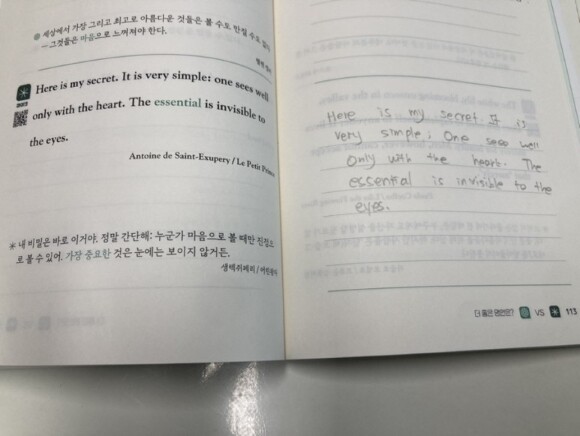 세상에서 가장 그리고 최고로 아름다운 것들은 볼 수도 만질 수도 없다
그것들은 마음으로 느껴져야 한다.
Here is my secret. It is very simple: one sees well
only with the heart. The essential is invisible to
the eyes.
Antoine de Saint-Exupery / Le Petit Prince
* 내 비밀은 바로 이거야. 정말 간단해: 누군가 마음으로 볼 때만 진정으
로 볼 수 있어. 가장 중요한 것은 눈에는 보이지 않거든.
생텍쥐페리 / 어린왕자
Here is my secret. It is
very simple; One sees well
Only with the heart. The
essential is invisible to the
eyes.
더 좋은 명언은? VS 113